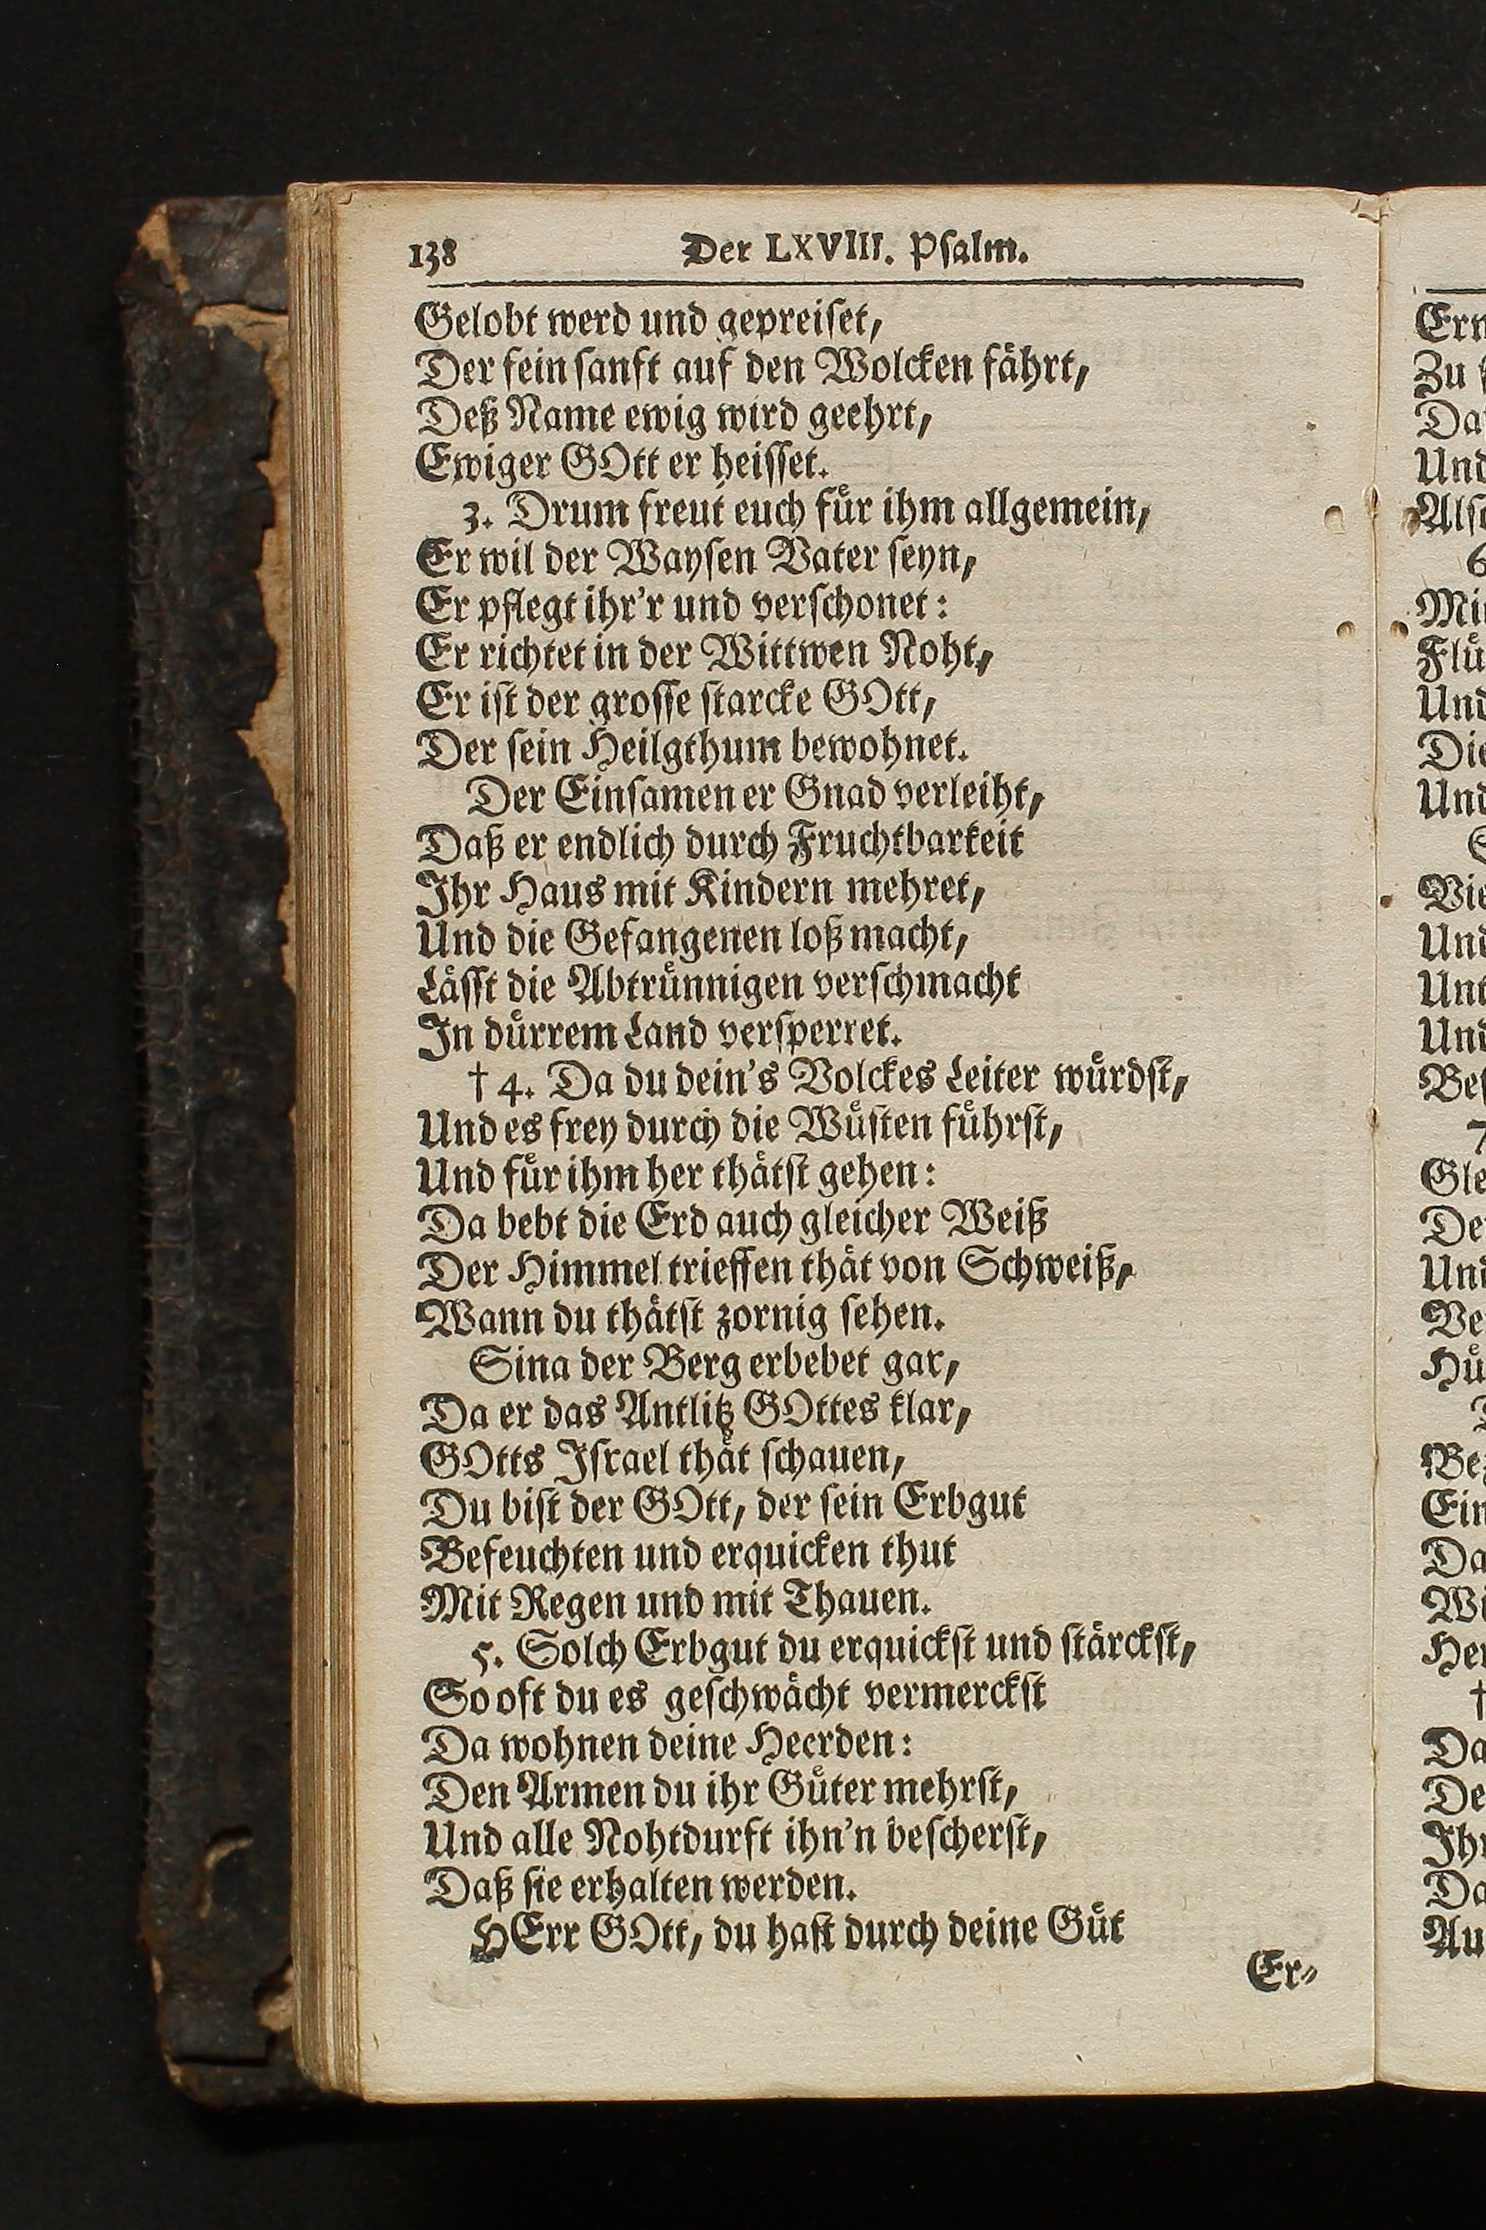 138 Der LXVIII. Psalm.
Gelobt werd und gepreiset,
Der fein sanft auf den Wolcken fährt,
Deß Name ewig wird geehrt,
Ewiger GOtt er heisset.
3. Drum freut euch für ihm allgemein,
Er wil der Waysen Vater seyn,
Er pflegt ihr'r und verschonet:
Er richtet in der Wittwen Noht,
Er ist der grosse starcke GOtt,
Der sein Heilgthum bewohnet.
Der Einsamen er Gnad verleiht,
Daß er endlich durch Fruchtbarkeit
Ihr Haus mit Kindern mehret,
Und die Gefangenen loß macht,
Lässt die Abtrünnigen verschmacht
In dürrem Land versperret.
† 4. Da du dein's Volckes Leiter würdst,
Und es frey durch die Wüsten führst,
Und für ihm her thätst gehen:
Da bebt die Erd auch gleicher Weiß
Der Himmel trieffen thät von Schweiß,
Wann du thätst zornig sehen.
Sina der Berg erbebet gar,
Da er das Antlitz GOttes klar,
GOtts Israel thät schauen,
Du bist der GOtt, der sein Erbgut
Befeuchten und erquicken thut
Mit Regen und mit Thauen.
5. Solch Erbgut du erquickst und stärckst,
So oft du es geschwächt vermerckst
Da wohnen deine Heerden:
Den Armen du ihr Güter mehrst,
Und alle Nohtdurft ihn'n bescherst,
Daß sie erhalten werden.
HErr GOtt, du hast durch deine Güt
Er-